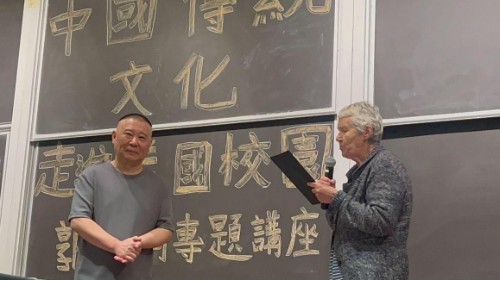 中國傳統
文化
走進 國校園
郭 專題講座